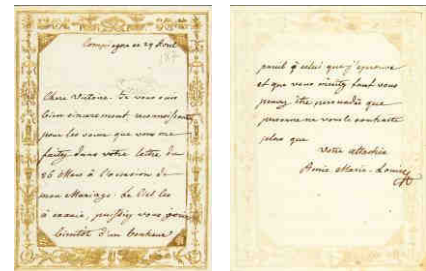 Compiegne ce 29 Avril
Chere Victoire. Je vous suis
bien sincerement reconnaissante
pour les voeux que vous me
faites dans votre lettre du
26 Mars à l'occasion de
mon Mariage. Le Ciel les
a exaucés, puissiez vous jouir
bientôt d'un bonheur
pareil à celui que j'eprouve
et que vous meritez tant vous
pouvez être persuadée que
personne ne vous le souhaite
plus que
Votre attachée
Amie Marie-Louise